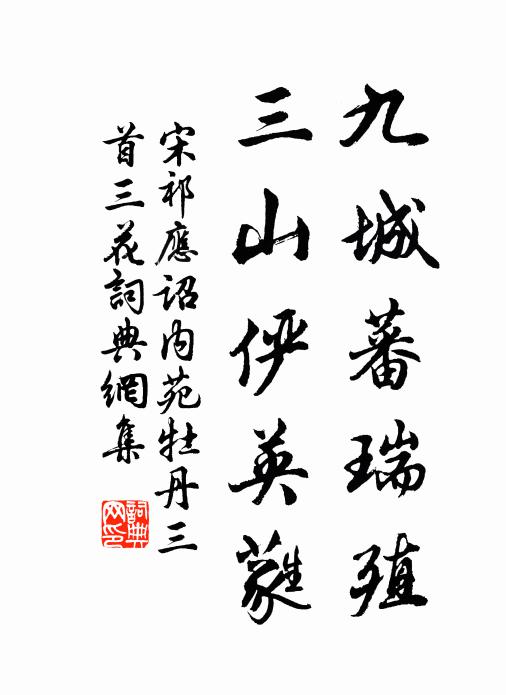 九城蕃瑞殖
三山俨英蕤
宋祁應詔内苑牡丹三
首三花詞典網集
詞典网印